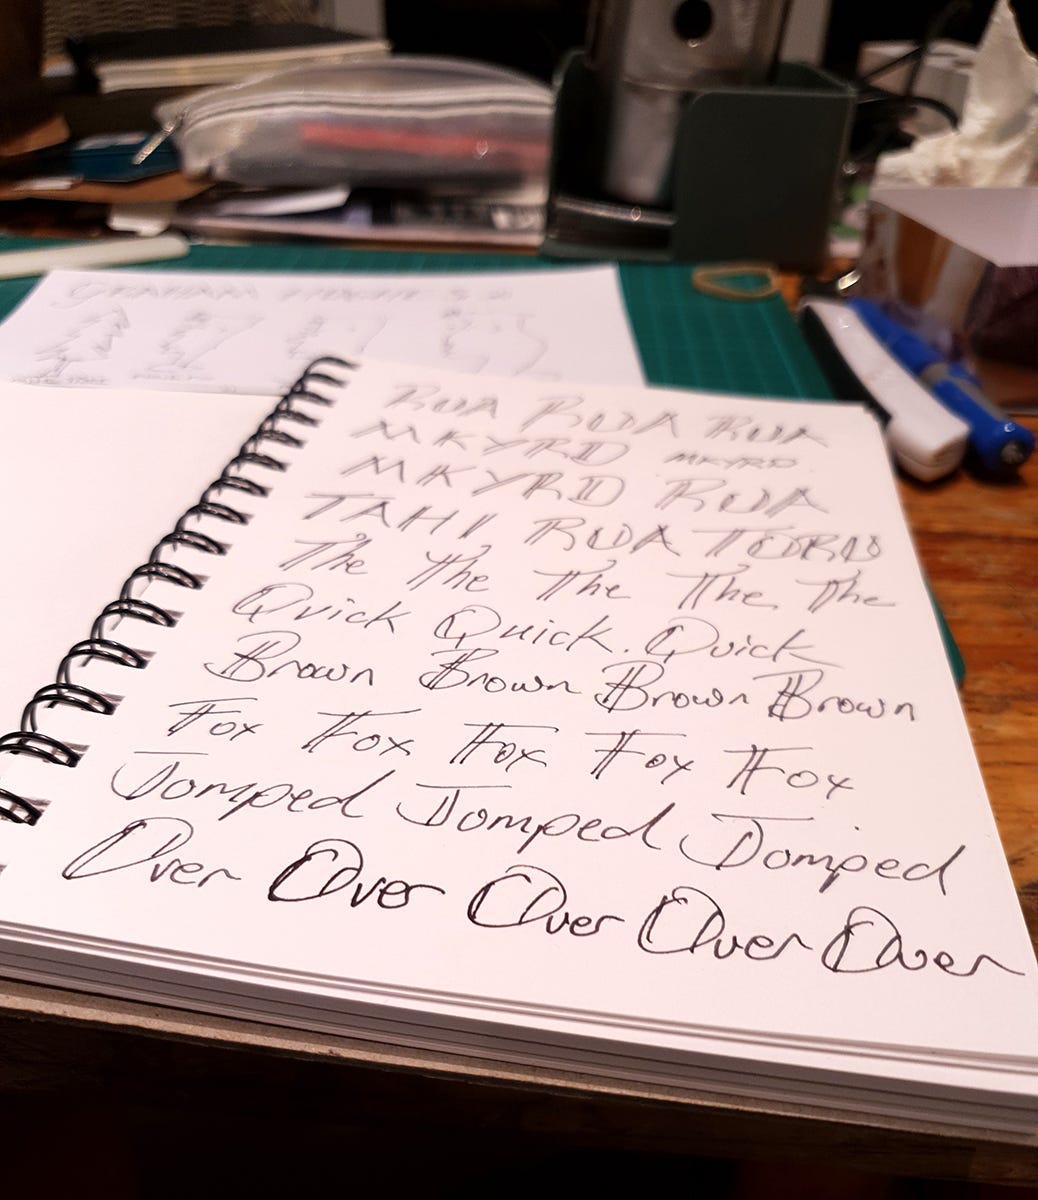 RUA RUA RUA
MKYRD MKYRD.
MKYRD RUA
TAHI RUA TORU
The The The The. The
Quick Quick. Quick
Brown Brown Brown Brown
Fox Fox Fox Fox Fox
Jomped Jomped Jomped
Over Over Over Over Over